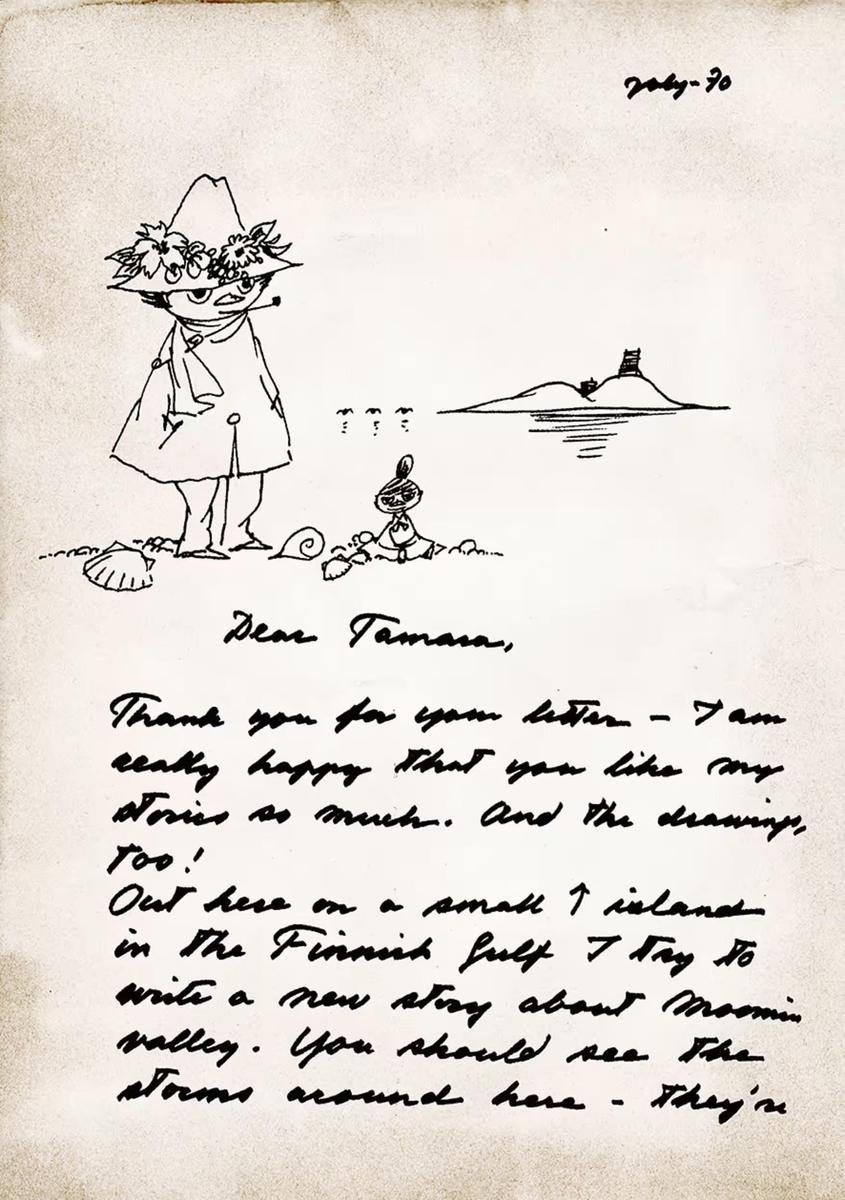 July-70
Dear Tamara,
Thank you for your letter - I am
really happy that you like my
stories so much. And the drawings,
too!
Out here on a small ↑ island
in the Finnish Gulf I try to
write a new story about Moomin
valley. You should see the
storms around here - they're